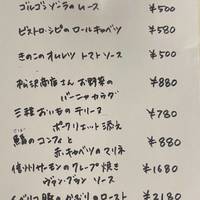 ゴルゴンゾーラのムース ¥500
ビストロ・シピのロールキャベツ ¥580
きのこのオムレツ トマトソース ¥500
松沢商店さん お野菜の ¥880
バーニャカウダ
三種おいものテリーヌ ¥780
ポークリエット添え
鯖のコンフィと ¥880
さば
赤キャベツのマリネ
信州サーモンのクレープ焼き ¥1680
ヴァンブランソース
イベリコ豚の ロースト ¥2180